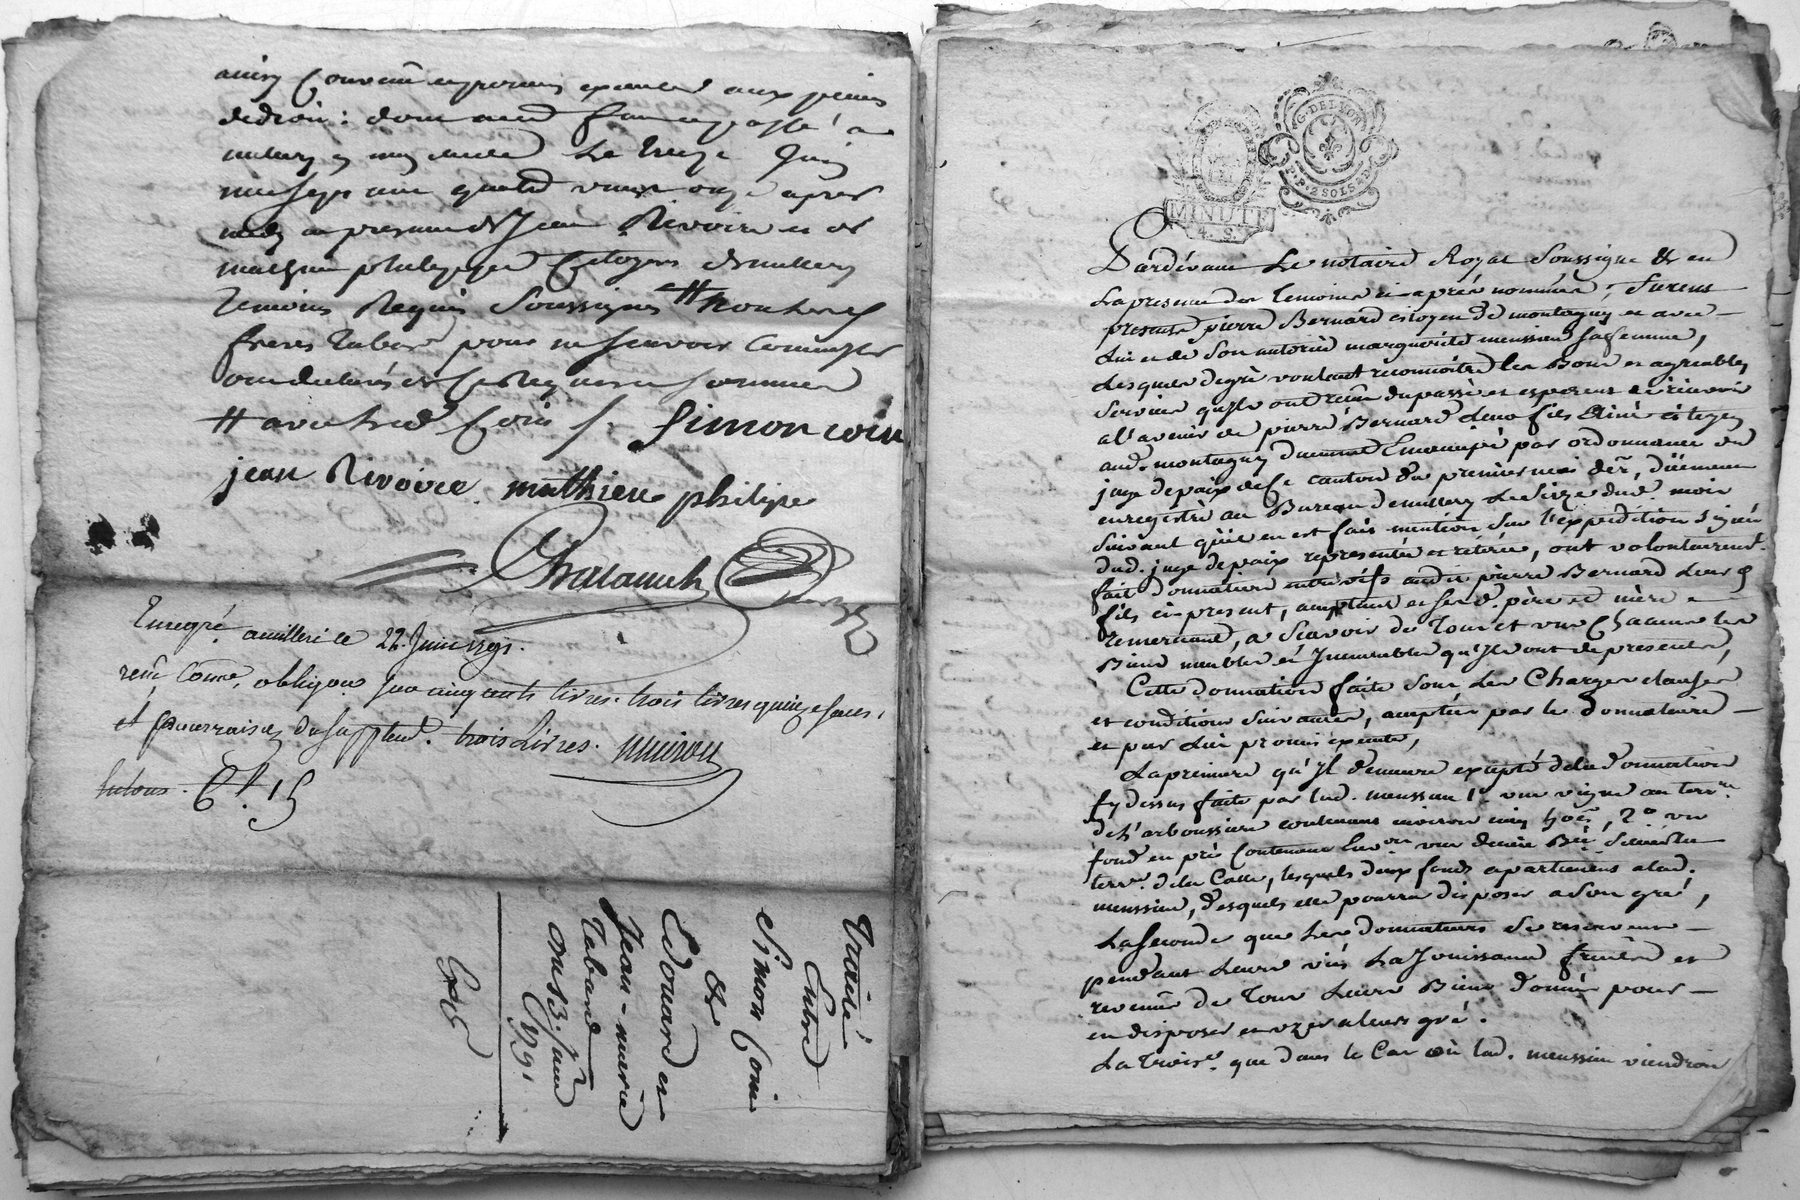 ainsy Convenu
dedroit: dont acte fait et passé a
millery le treize Juin
mil sept cent quatre vingt onze apres
midy en presence de Jean Rivoire et de
mathieu philippe Citoyens de millery
temoins Requis Soussignés #
freres Tabard pour ne scavoir
# avec led Coin /. Simon coin
jean Rivoire. mathieu philipe
Enregré a milleri ce 22. Juin 1791.
cinquante livres. trois livres quinze sous,
et trois Livres.
15
Traité
Entre
Simon Coin
&
Edouard et
Jean-marie
Tabard
du 13. Juin
1791
G. DE LYON
P.P. 2 SOLS A.D.
MINUTE
4. S.
Pardevant Le notaire Royal Soussigné & en
La presence des temoins ci-après nommés, furent
presents pierre Bernard citoyen de montagny et avec
Lui et de Son autorité marguerite meussieu sa femme,
Lesquels de gré voulant reconnoître les Bons et agreables
Services qu'Ils ont reçu du passé et esperent de recevoir
a l'avenir de pierre Bernard Leur fils citoyen
aud. montagny Emancipé par ordonnance du
juge de paix de ce canton du premier mai der, düement
enregistré au Bureau de millery Le Seize dud. mois
Suivant qu'il en est fait mention Sur l'expedition Signée
dud. juge de paix representée et retirée, ont volontairemt
fait donnation entrevifs audit pierre Bernard Leur
fils ci present, acceptant et sesd. père et mère
remerciant, a Scavoir de Tous et un Chacuns les
Biens meubles et Immeubles qu'Ils ont de present,
Cette donnation faite Sous Les Charges clauses
et conditions Suivantes, acceptées par le donnataire
et par Lui promis executer,
La premiere qu'Il demeure excepté de la donnation
Cy dessus faite par lad. meussieu 1° une vigne au terre
de L'arboussiere contenant environ cinq hoes, 2° un
fond en pré Contenant
terre. de la Catte, lesquels deux fonds apartienent a lad.
meussieu, desquels elle pourra disposer a Son gré,
La Seconde que Les donnateurs Se reservent
pendant Leurs vies La Jouissance fruits et
revenus de Tous Leurs Biens donnés pour
en disposer et uzer a leurs gré.
La Troise. que dans le Cas où lad. meussieu viendroit